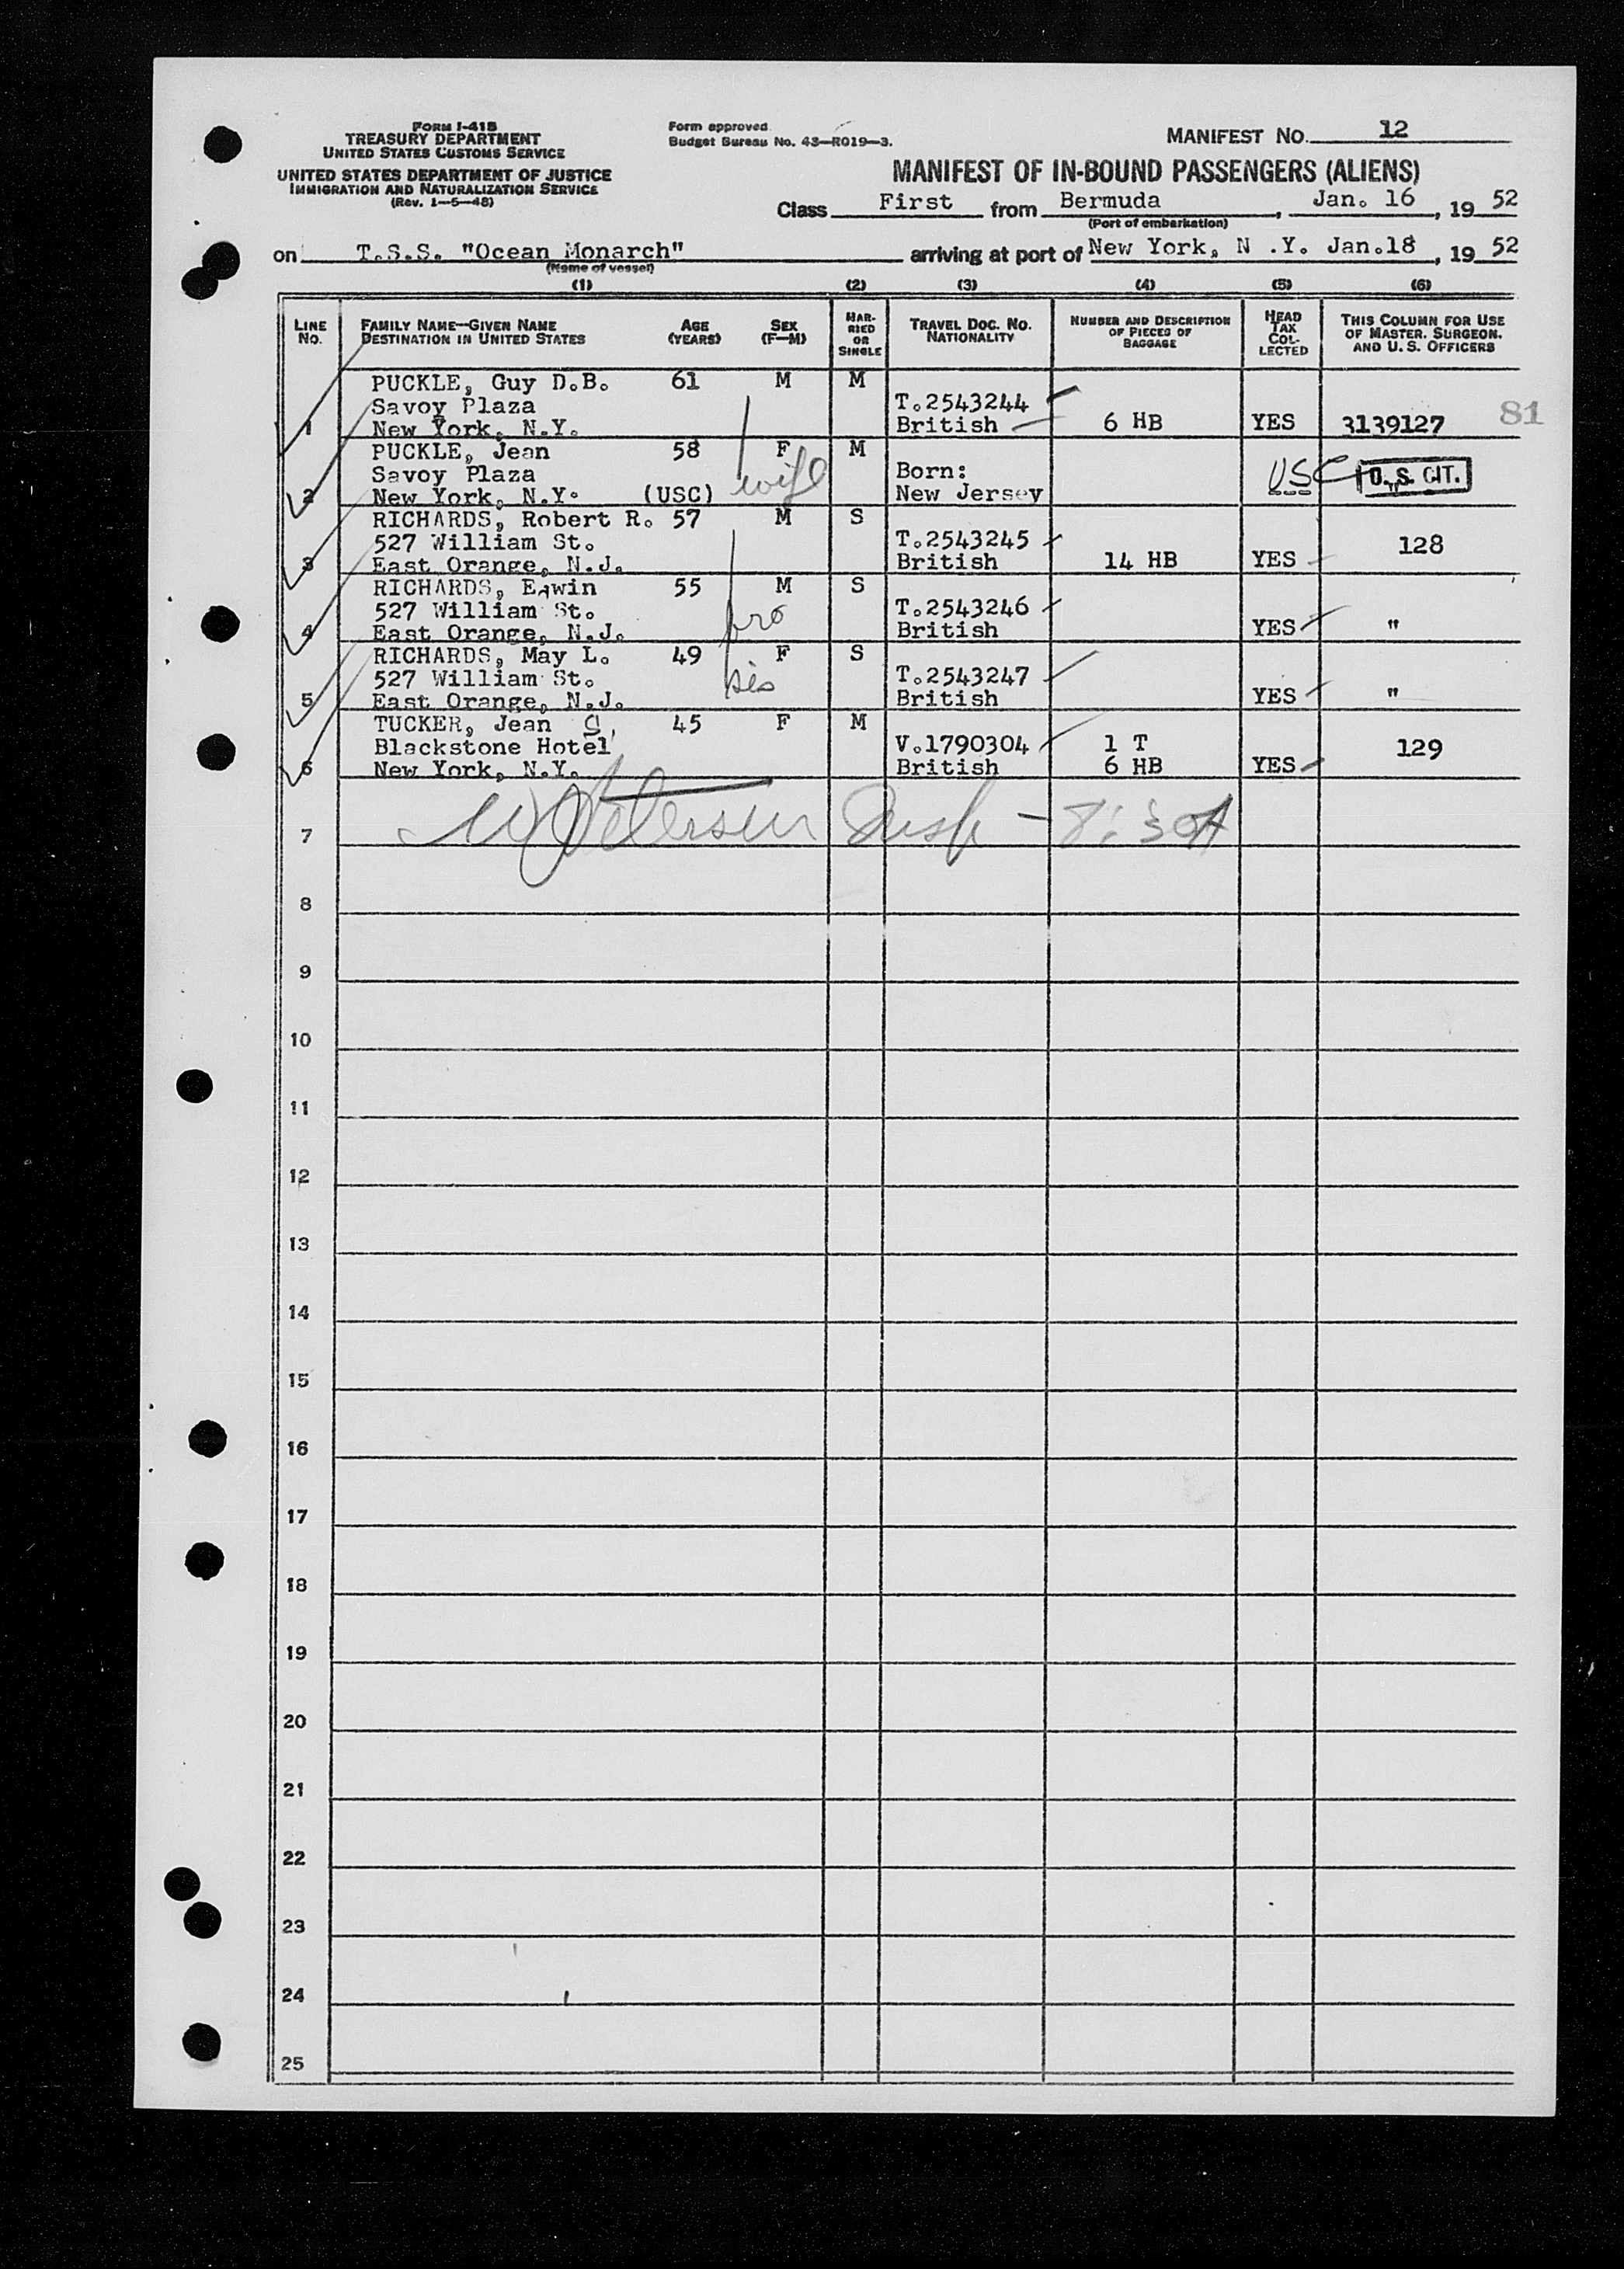 FORM I-415
TREASURY DEPARTMENT
UNITED STATES CUSTOMS SERVICE
UNITED STATES DEPARTMENT OF JUSTICE
IMMIGRATION AND NATURALIZATION SERVICE
(Rev. 1-5-48)
Form approved.
Budget Bureau No. 43-R019-3.
MANIFEST NO. 12
MANIFEST OF IN-BOUND PASSENGERS (ALIENS)
Class First from Bermuda, Jan. 16, 1952
(Port of embarkation)
on T.S.S. "Ocean Monarch" arriving at port of New York, N .Y. Jan.18, 1952
(Name of vessel)
(1) (2) (3) (4) (5) (6)
LINE NO.
FAMILY NAME—GIVEN NAME
DESTINATION IN UNITED STATES
AGE (YEARS)
SEX (F—M)
MARRIED OR SINGLE
TRAVEL DOC. NO. NATIONALITY
NUMBER AND DESCRIPTION OF PIECES OF BAGGAGE
HEAD TAX COLLECTED
THIS COLUMN FOR USE OF MASTER, SURGEON, AND U. S. OFFICERS
PUCKLE, Guy D.B. 61 M M
Savoy Plaza T.2543244
1 New York, N.Y. British 6 HB YES 3139127 81
PUCKLE, Jean 58 F M
Savoy Plaza wife Born: USC U.S. CIT.
2 New York, N.Y. (USC) New Jersey
RICHARDS, Robert R. 57 M S
527 William St. T.2543245 128
3 East Orange, N.J. British 14 HB YES
RICHARDS, Edwin 55 M S
527 William St. bro T.2543246
4 East Orange, N.J. British YES "
RICHARDS, May L. 49 F S
527 William St. sis T.2543247
5 East Orange, N.J. British YES "
TUCKER, Jean S. 45 F M
Blackstone Hotel V.1790304 1 T 129
6 New York, N.Y. British 6 HB YES
7 Petersen Insp - 8:30A
8
9
10
11
12
13
14
15
16
17
18
19
20
21
22
23
24
25